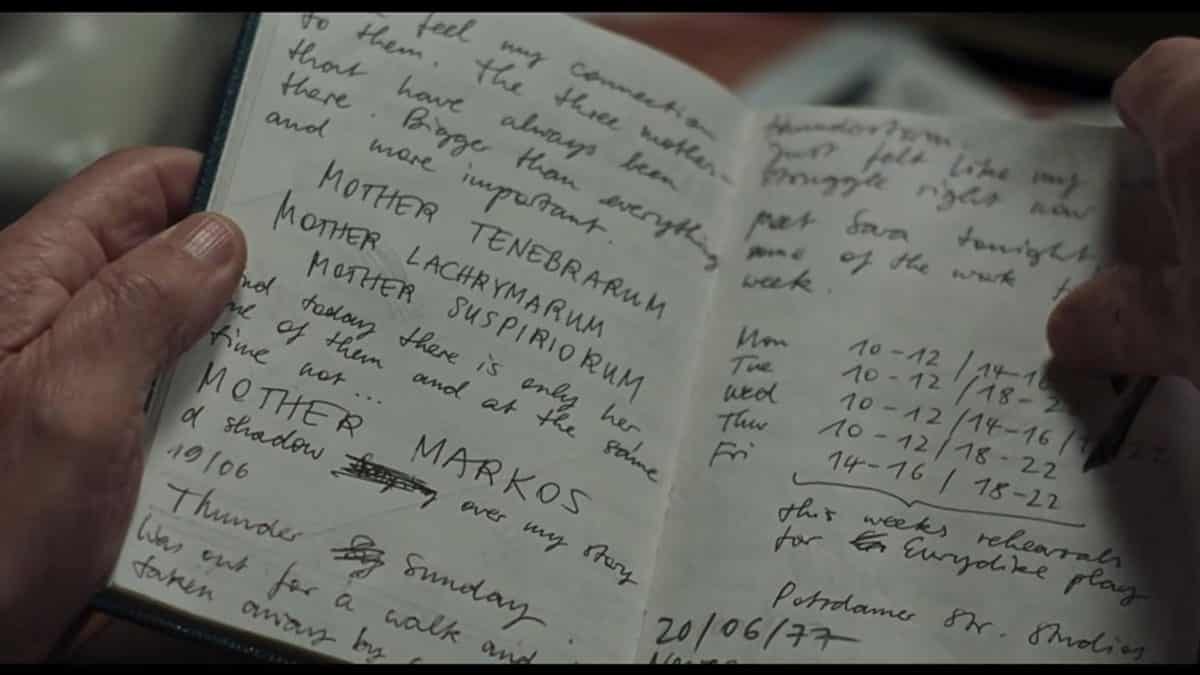 feel my connection
to them. The three mothers
that have always been
there. Bigger than everything
and more important.
MOTHER TENEBRARUM
MOTHER LACHRYMARUM
MOTHER SUSPIRIORUM
and today there is only
one of them and at the same
time not...
MOTHER MARKOS
a shadow over my story
19/06
Thunder Sunday.
Was out for a walk and
taken away by
thunderstorm.
Just felt like my
struggle right now
meet Sara tonight.
some of the work
week.
Mon 10-12 / 14-16
Tue 10-12 / 18-2
Wed 10-12 / 14-16 / 22
Thur 10-12 / 18-22
Fri 14-16 / 18-22
this weeks rehearsals
for Eurydike play
Potsdamer Str. Studios
20/06/77